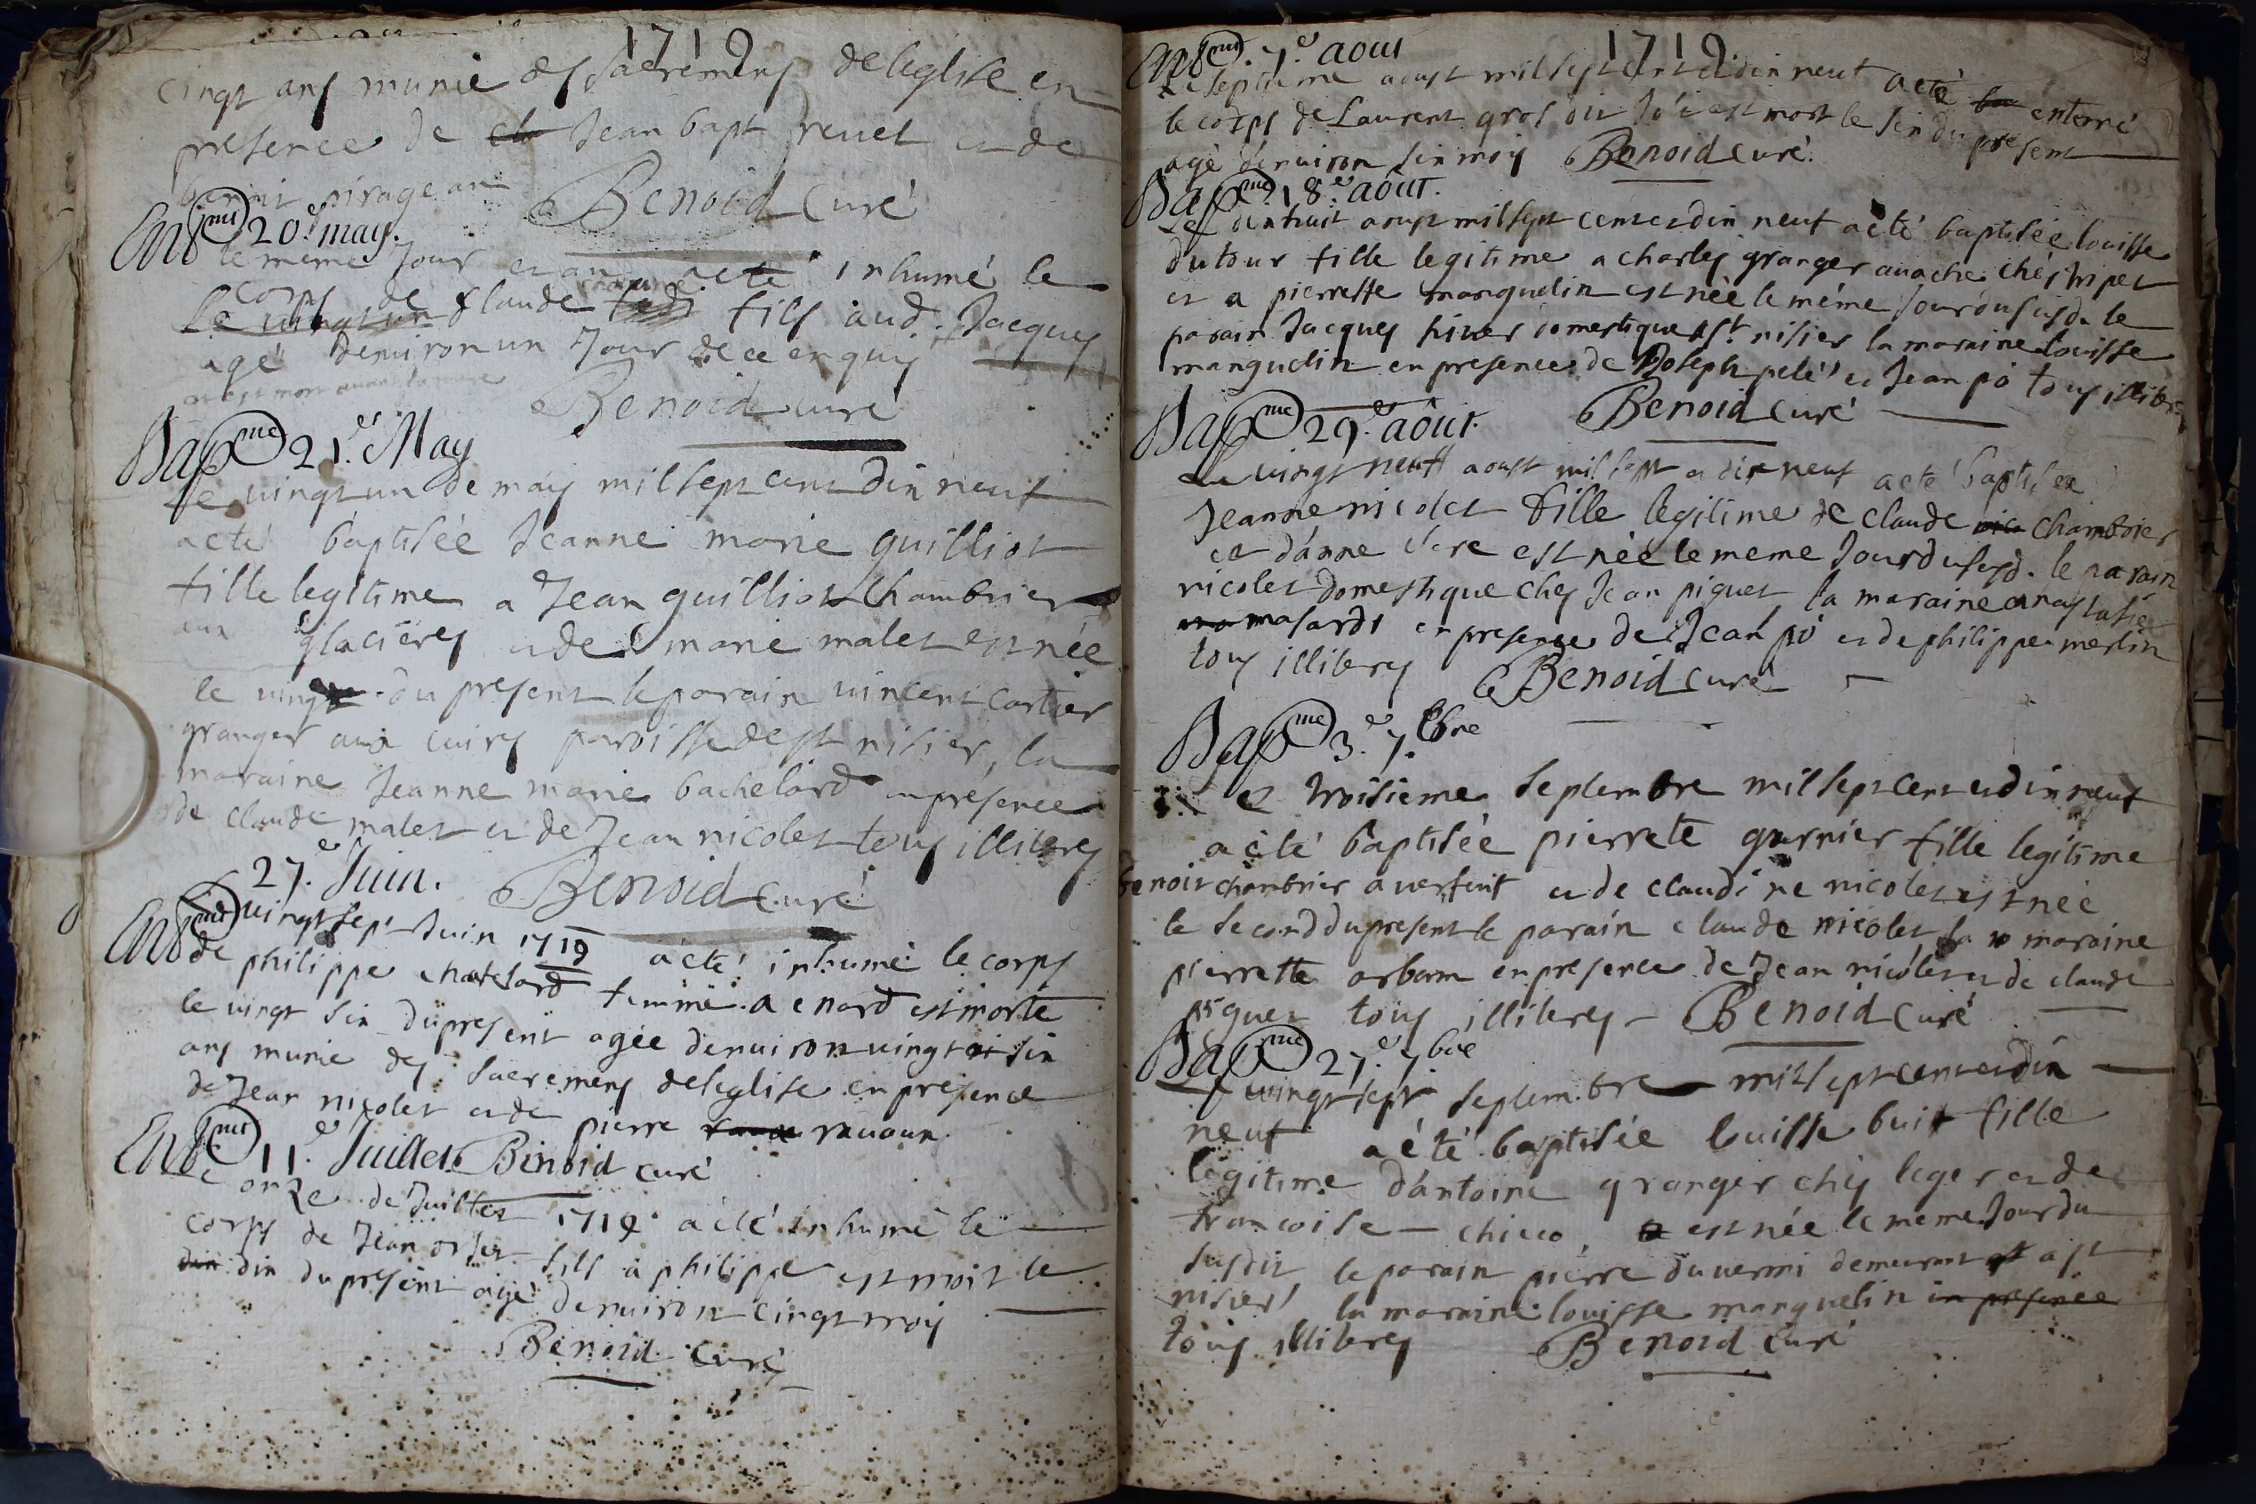 1719
cinqt ans munie des sacremens de leglise en
presence de Jean bapt revet et de
benoit pirage an
Benoid Curé
Ent 20e may.
le meme jour et an a été inhumé le
corps de claude fils aud. Jacques
agé denviron un jour
Benoid curé
Bapme 21.e May
Le vingt un de may mil sept cent dix neuf
a eté baptisée Jeanne marie guilliot
fille legitime a Jean guilliot chambrier
aux glacieres et de marie malet est née
le vingt du present le parain vincent cartier
granger aux cuires paroisse de st nisier, la
maraine Jeanne marie bachelard en presence
de claude malet et de Jean nicolet tous illiteres
Benoid curé
27.e Juin.
Entmt
Le vingt sept Juin 1719 a eté inhumé le corps
de philippe chatelard femme a enard est morte
le vingt six du present agée denviron vingt six
ans munie des sacremens de leglise en presence
de Jean nicolet et de pierre ravoux
Entmt 11.e Juillet. Benoid curé
Le onze de Juillet 1719 a eté inhumé le
corps de Jean orset fils a philippe est mort le
dix du present agé denviron cinqt mois
Benoid curé
1719
Entmt. 7.e aout
Le septieme aoust mil sept cent et dix neuf a eté enterré
le corps de Laurent gros dit est mort le six du present
agé denviron six mois Benoid curé.
Bapme 18.e aôut.
Le dix huit aoust mil sept cent et dix neuf a eté baptisée louisse
dutour fille legitime a charles granger chés tripet
et a pierrette manguelin est née le méme jour susd. le
parain Jacques hiver domestique a St. nisier la maraine louisse
manguelin en presence de Joseph pelé et Jean pó tous illiteres
Benoid curé
Bapme 29.e aôut.
Le vingt neuf aoust mil sept et dix neuf a eté baptisée
Jeanne nicolet fille legitime de claude chambrier
et danne est née le meme jour du susd. le parain
nicolet domestique ches Jean piquet la maraine anastasie
masardi en presence de Jean pó et de philippe merlin
tous illiteres
Benoid curé
Bapme 3.e 7.bre
Le troisieme septembre mil sept cent et dix neuf
a eté baptisée pierrete garnier fille legitime
benoit chambrier a verfeut et de claudine nicolet est née
le second du present le parain claude nicolet la maraine
pierrette orban en presence de Jean nicolet et de claude
piquet tous illiteres Benoid Curé
Bapme 27.e 7.bre
Le vingt sept septembre mil sept cent et dix
neuf a été baptisée louisse buit fille
legitime dantoine granger ches leger et de
francoise chicco, est née le meme jour du
susdit, le parain pierre duvermi demeurant a st
nisier, la maraine louisse manguelin en presence
tous illiteres Benoid Curé